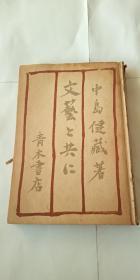 中島健藏著
文藝と共に
青木書店